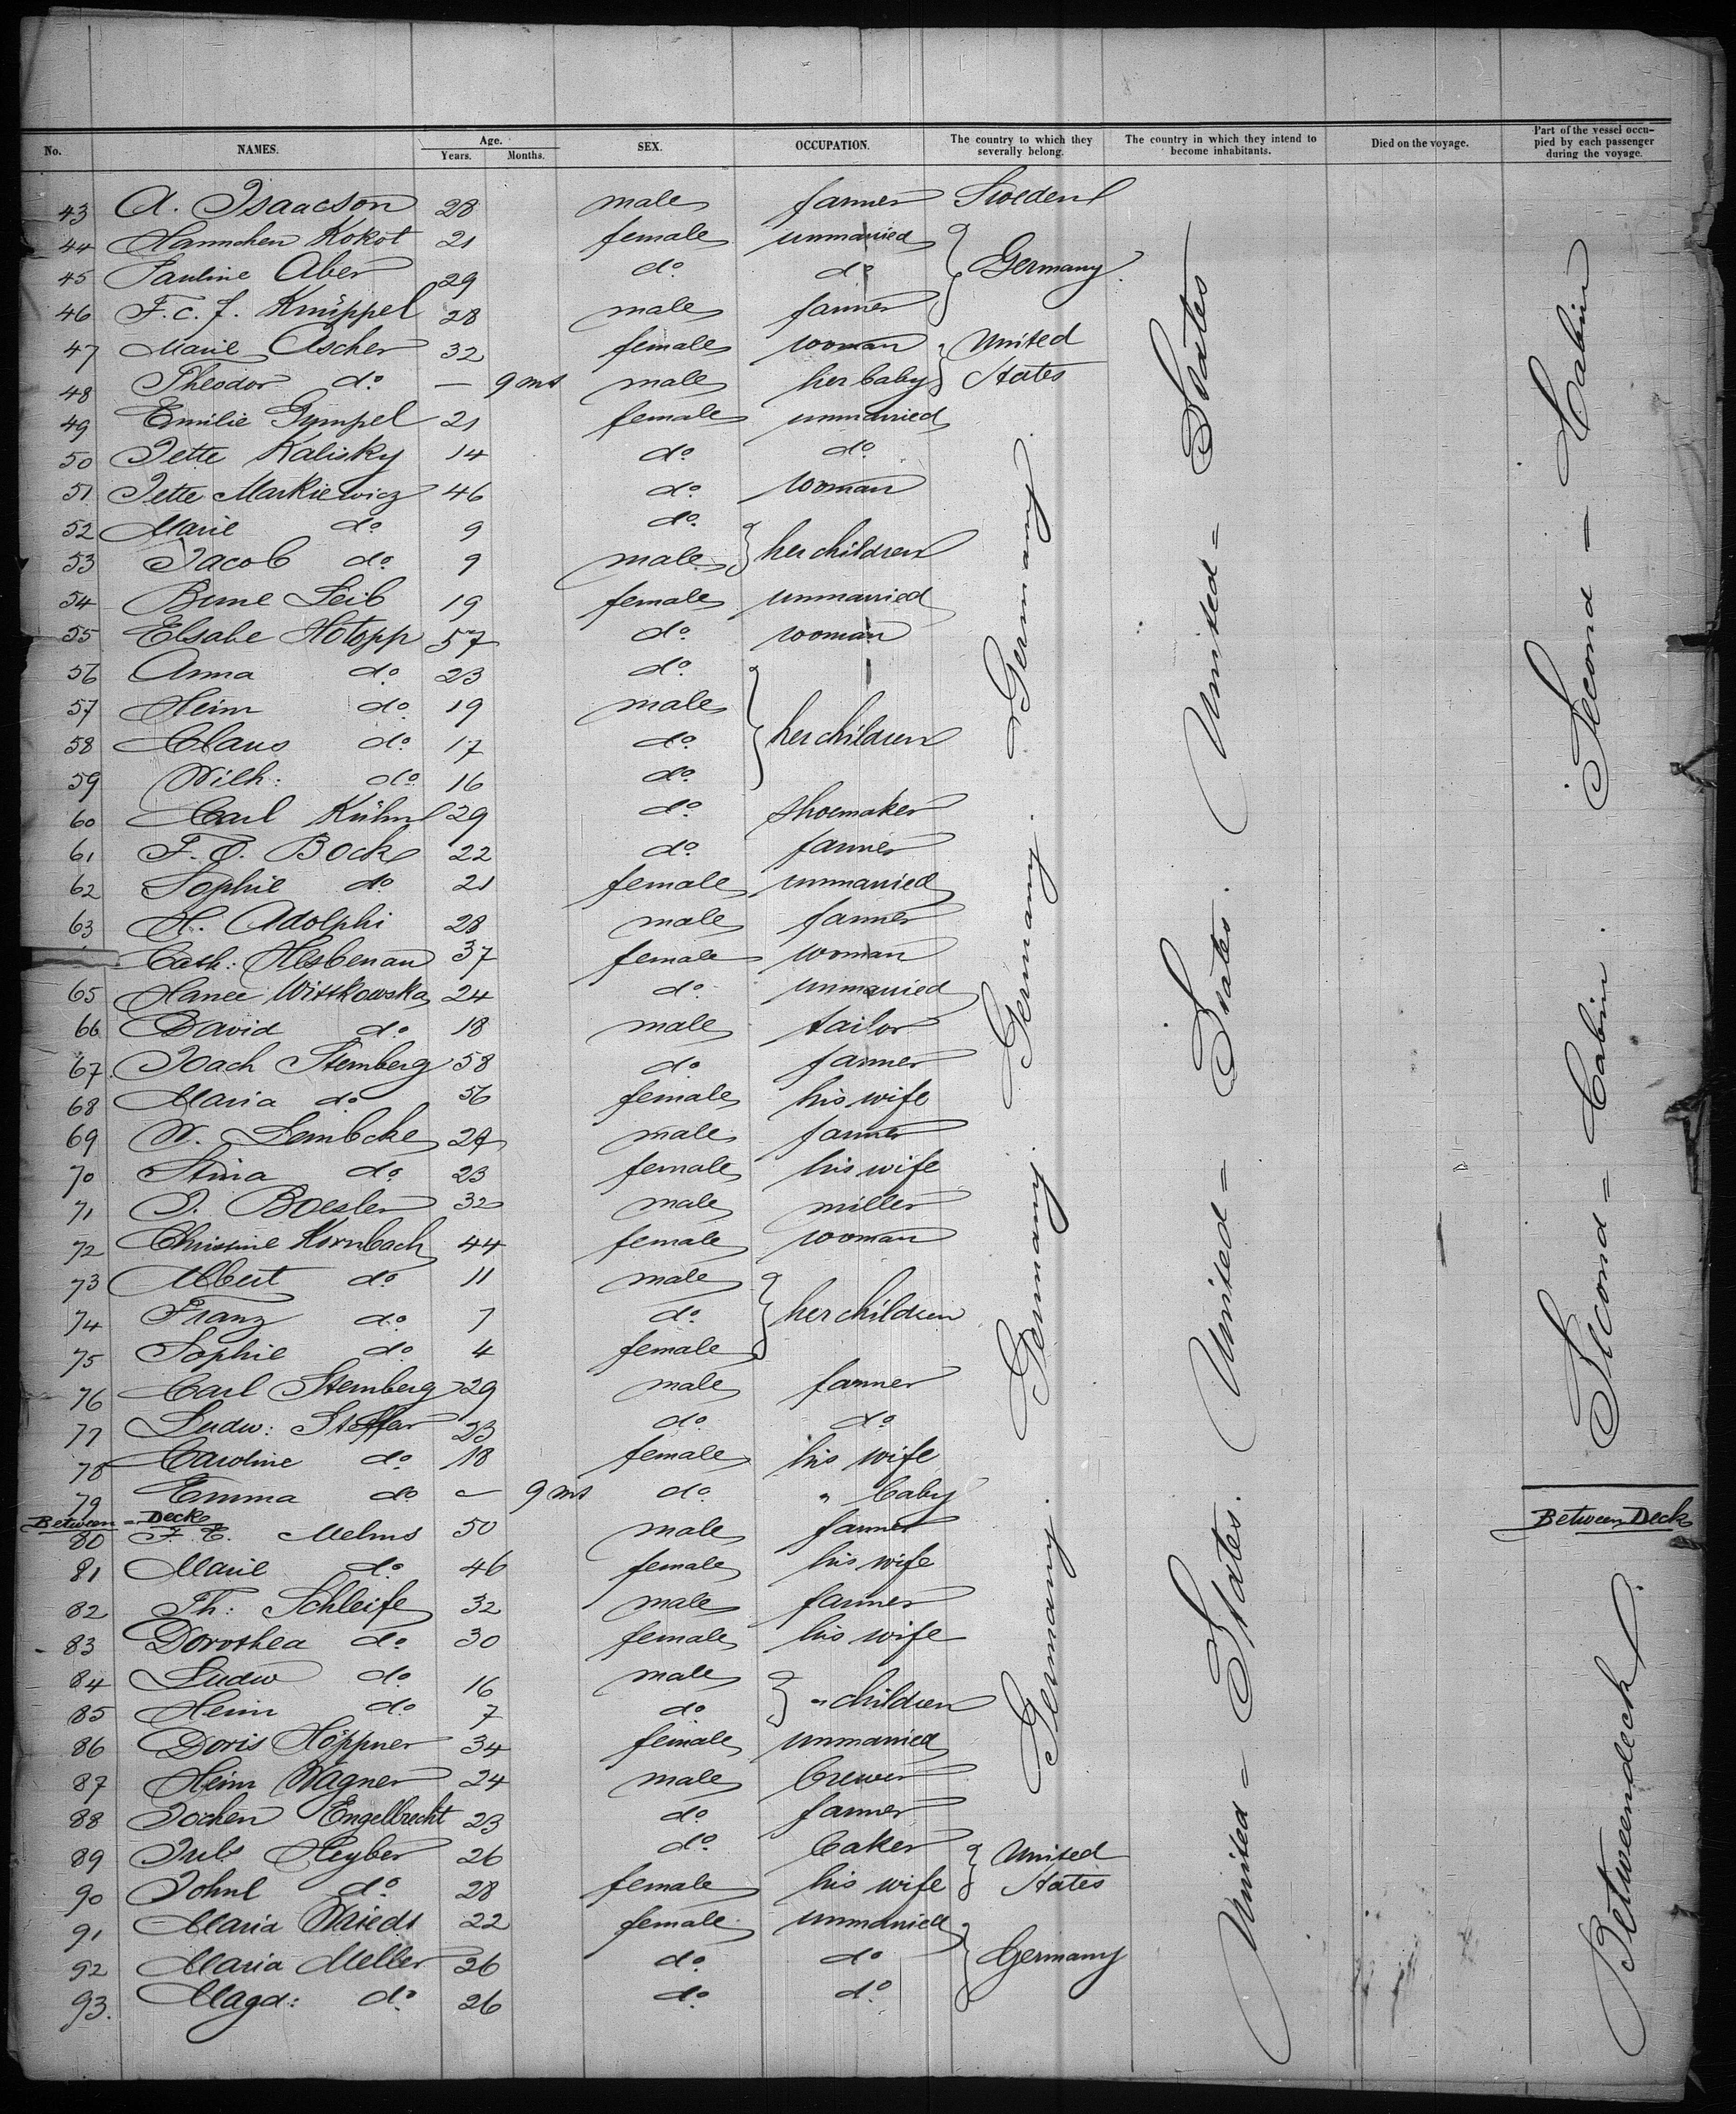 No. NAMES. Age. Years. Months. SEX. OCCUPATION. The country to which they severally belong. The country in which they intend to become inhabitants. Died on the voyage. Part of the vessel occupied by each passenger during the voyage.
43 A. Isaacson 28 male farmer Sweden
44 Hannchen Kokot 21 female unmarried
45 Pauline Aber 29 do. do Germany.
46 F. C. J. Knüppel 28 male farmer
47 Marie Ascher 32 female woman United
48 Theodor do. — 9 ms male her baby States
49 Emilie Gumpel 21 female unmarried
50 Jette Kalisky 14 do. do.
51 Jette Markiewicz 46 do. woman
52 Marie do. 9 do.
53 Jacob do. 9 male her children
54 Bune Leib 19 female unmarried
55 Elsabe Hotopp 57 do. woman
56 Anna do. 23 do.
57 Heinr do. 19 male
58 Claus do. 17 do. her children
59 Wilh: do. 16 do.
60 Carl Kühnl 29 do. shoemaker
61 F. O. Bock 22 do. farmer
62 Sophie do 21 female unmarried
63 H. Adolphi 28 male farmer
Cath: Hesbenau 37 female woman
65 Hanee Wittkowska 24 do. unmarried
66 David do. 18 male tailor
67. Joach Sternberg 58 do. farmer
68 Maria do 56 female his wife
69 W. Lembcke 24 male farmer
70 Stina do. 23 female his wife
71 J. Boesler 32 male miller
72 Christine Kornbach 44 female woman
73 Albert do. 11 male
74 Franz do. 7 do. her children
75 Sophie do. 4 female
76 Carl Sternberg 29 male farmer
77 Ludw: Steffar 23 do. do.
78 Caroline do. 18 female his wife
79 Emma do — 9 ms do. " baby
Between = Deck Between Deck
80 F. E. Melms 50 male farmer
81 Marie do. 46 female his wife
82 Th: Schleife 32 male farmer
83 Dorothea do. 30 female his wife
84 Ludw do. 16 male
85 Heinr do. 7 do " children
86 Doris Höppner 34 female unmarried
87 Heinr Wagner 24 male brewer
88 Jochen Engelbrecht 23 do. farmer
89 Juls Heyber 26 do. baker United
90 Johnl do. 28 female his wife States
91 Maria 22 female unmarried
92 Maria Meller 26 do. do Germany
93. Magd: do. 26 do. do.
Germany. Germany. Germany. Germany.
United = States. United = States. United = States
Second = Cabin. Second = Cabin
Betweendeck.